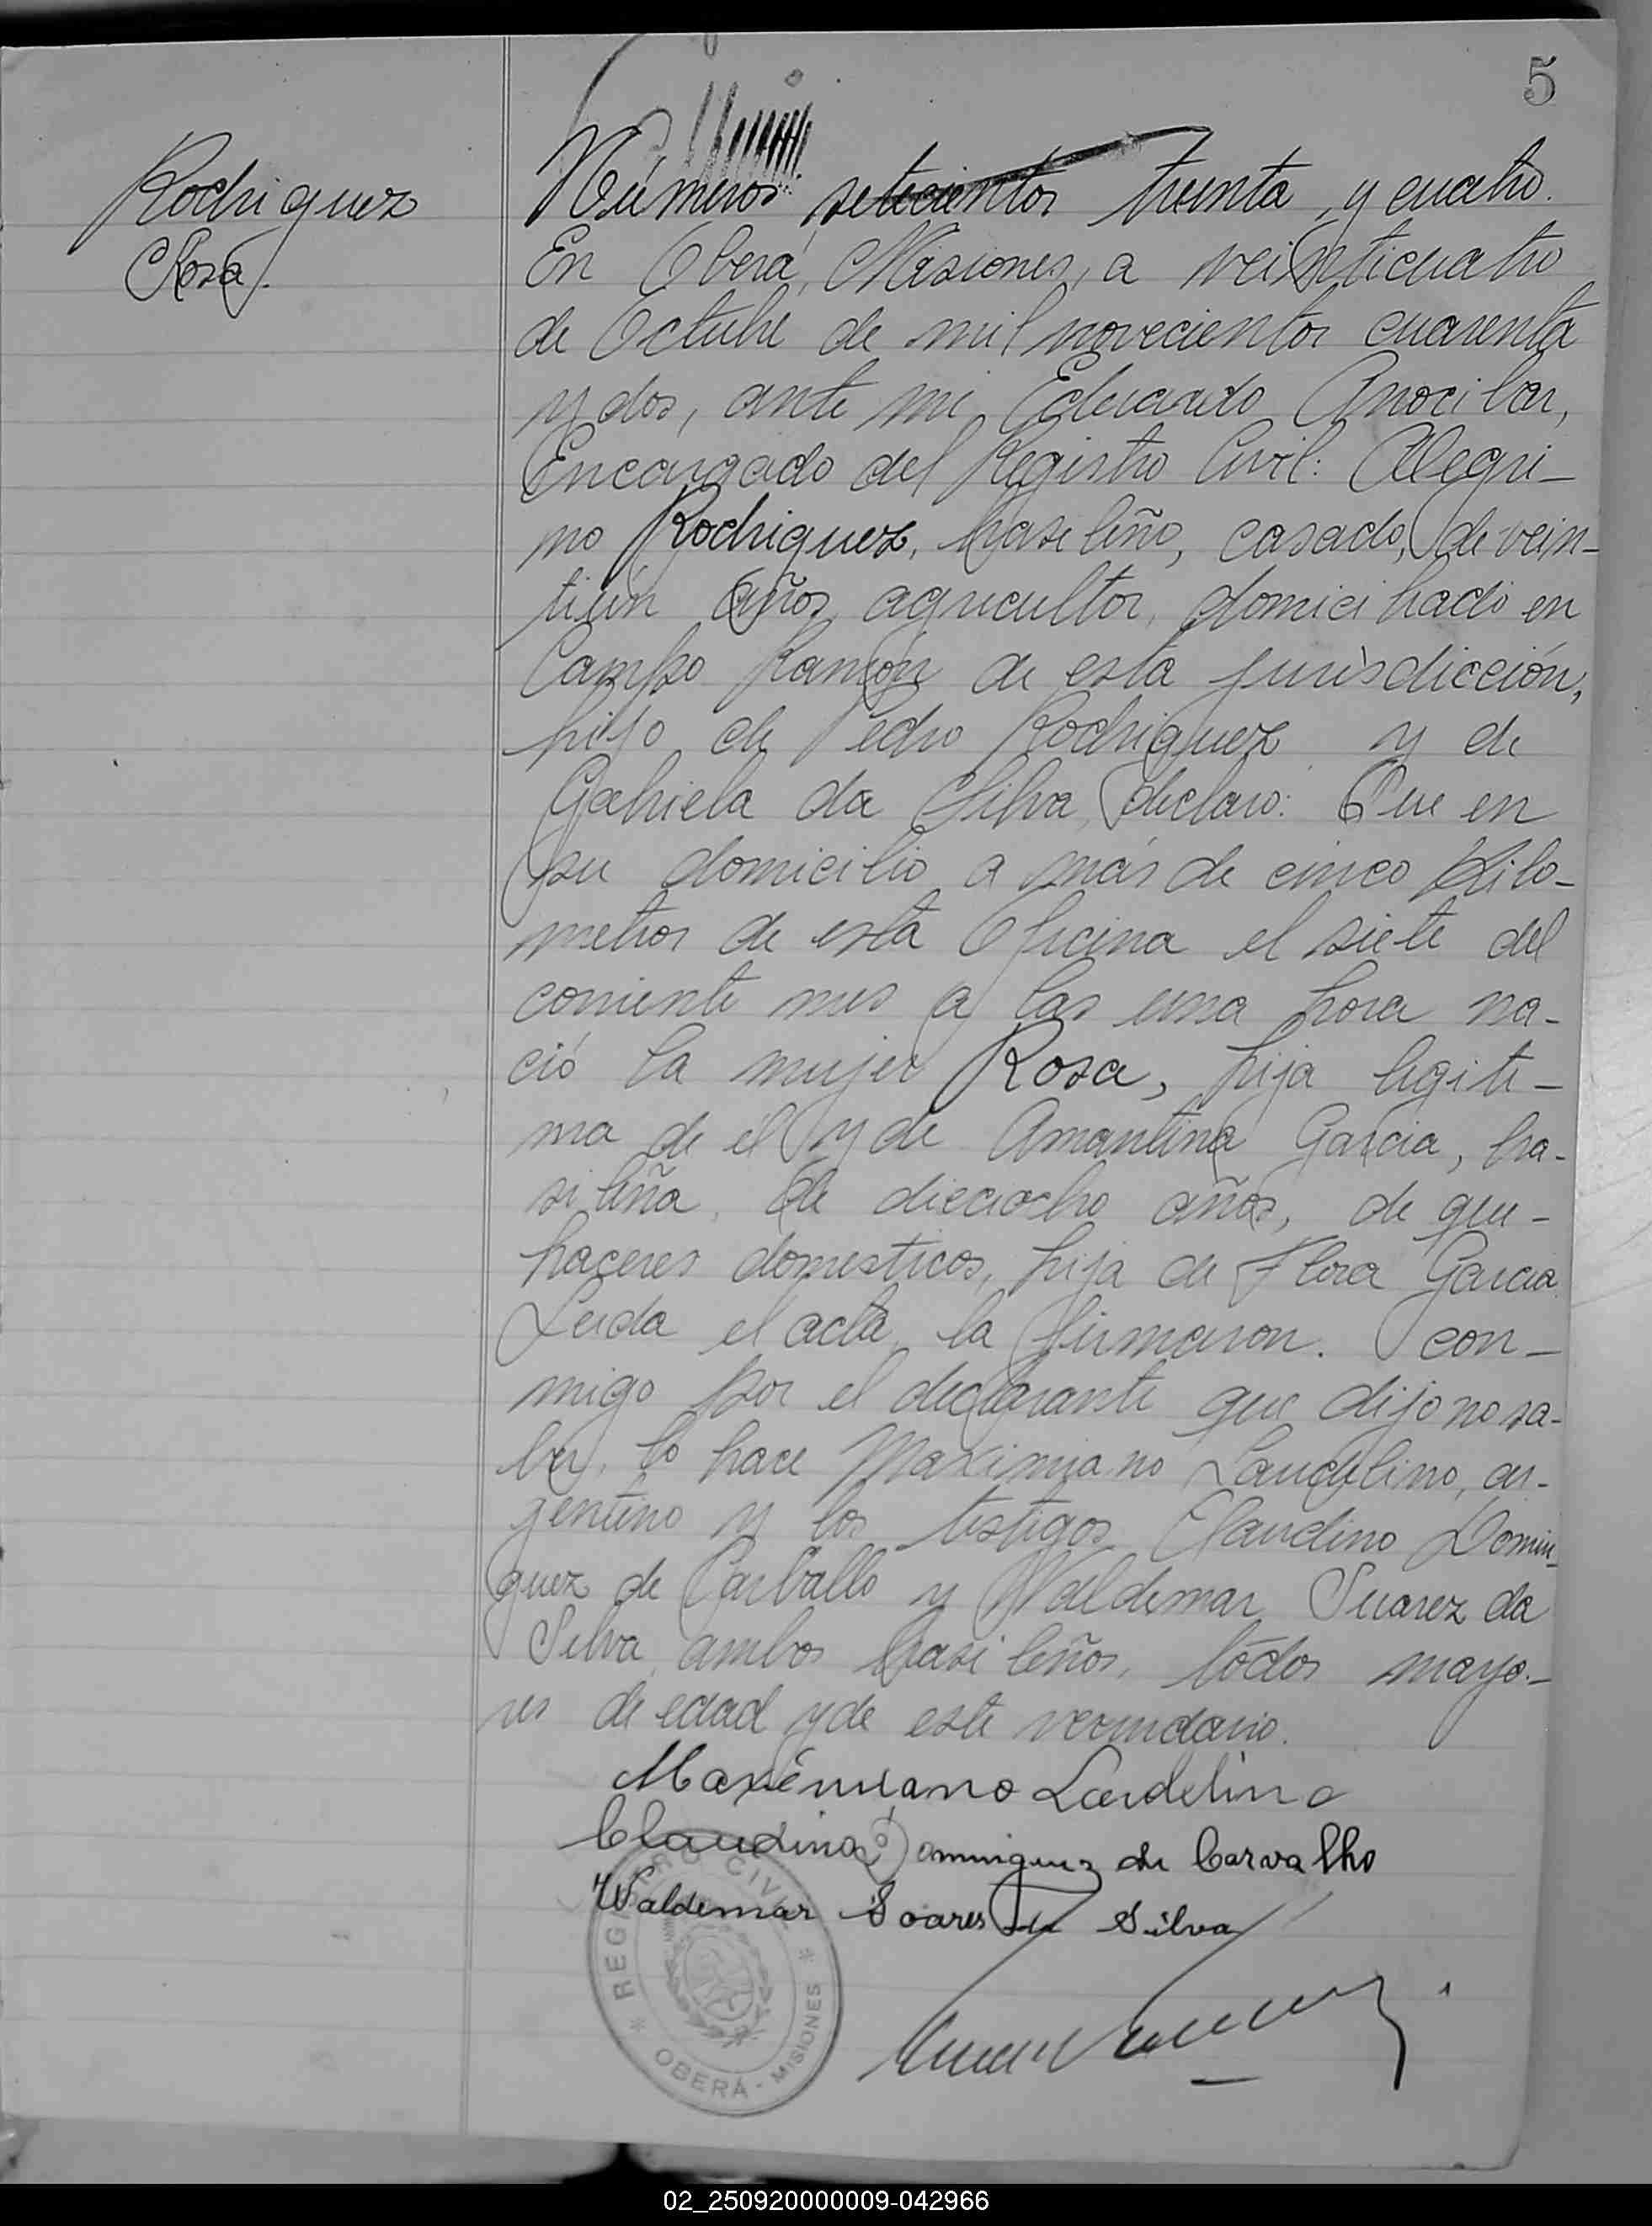 5
Rodriguez
Rosa.
Número setecientos treinta y cuatro.
En Oberá, Misiones, a veinticuatro
de Octubre de mil novecientos cuarenta
y dos, ante mi, Eduardo Anocibar,
Encargado del Registro Civil: Alegri-
no Rodriguez, brasileño, casado, de vein-
tiún años, agricultor, domiciliado en
Campo Ramón de esta jurisdicción,
hijo de Pedro Rodriguez y de
Gabriela da Silva, declaro: Que en
su domicilio a más de cinco Kilo-
metros de esta Oficina el siete del
corriente mes a las una hora na-
ció la mujer Rosa, hija legiti-
ma de él y de Amantina Garcia, bra-
sileña, de dieciocho años, de que-
haceres domesticos, hija de Flora Garcia
Leida el acta, la firmaron. con-
migo por el declarante que dijo no sa-
ber, lo hace Maximiano Laudelino, ar-
gentino y los testigos Claudino Domin-
guez de Carballo y Waldemar Suarez da
Silva, ambos brasileños, todos mayo-
res de edad y de este vecindario.
Maximiano Laudelino
Claudino Dominguez de Carvalho
Waldemar Soares da Silva
REGISTRO CIVIL
* OBERÁ - MISIONES *
02_250920000009-042966